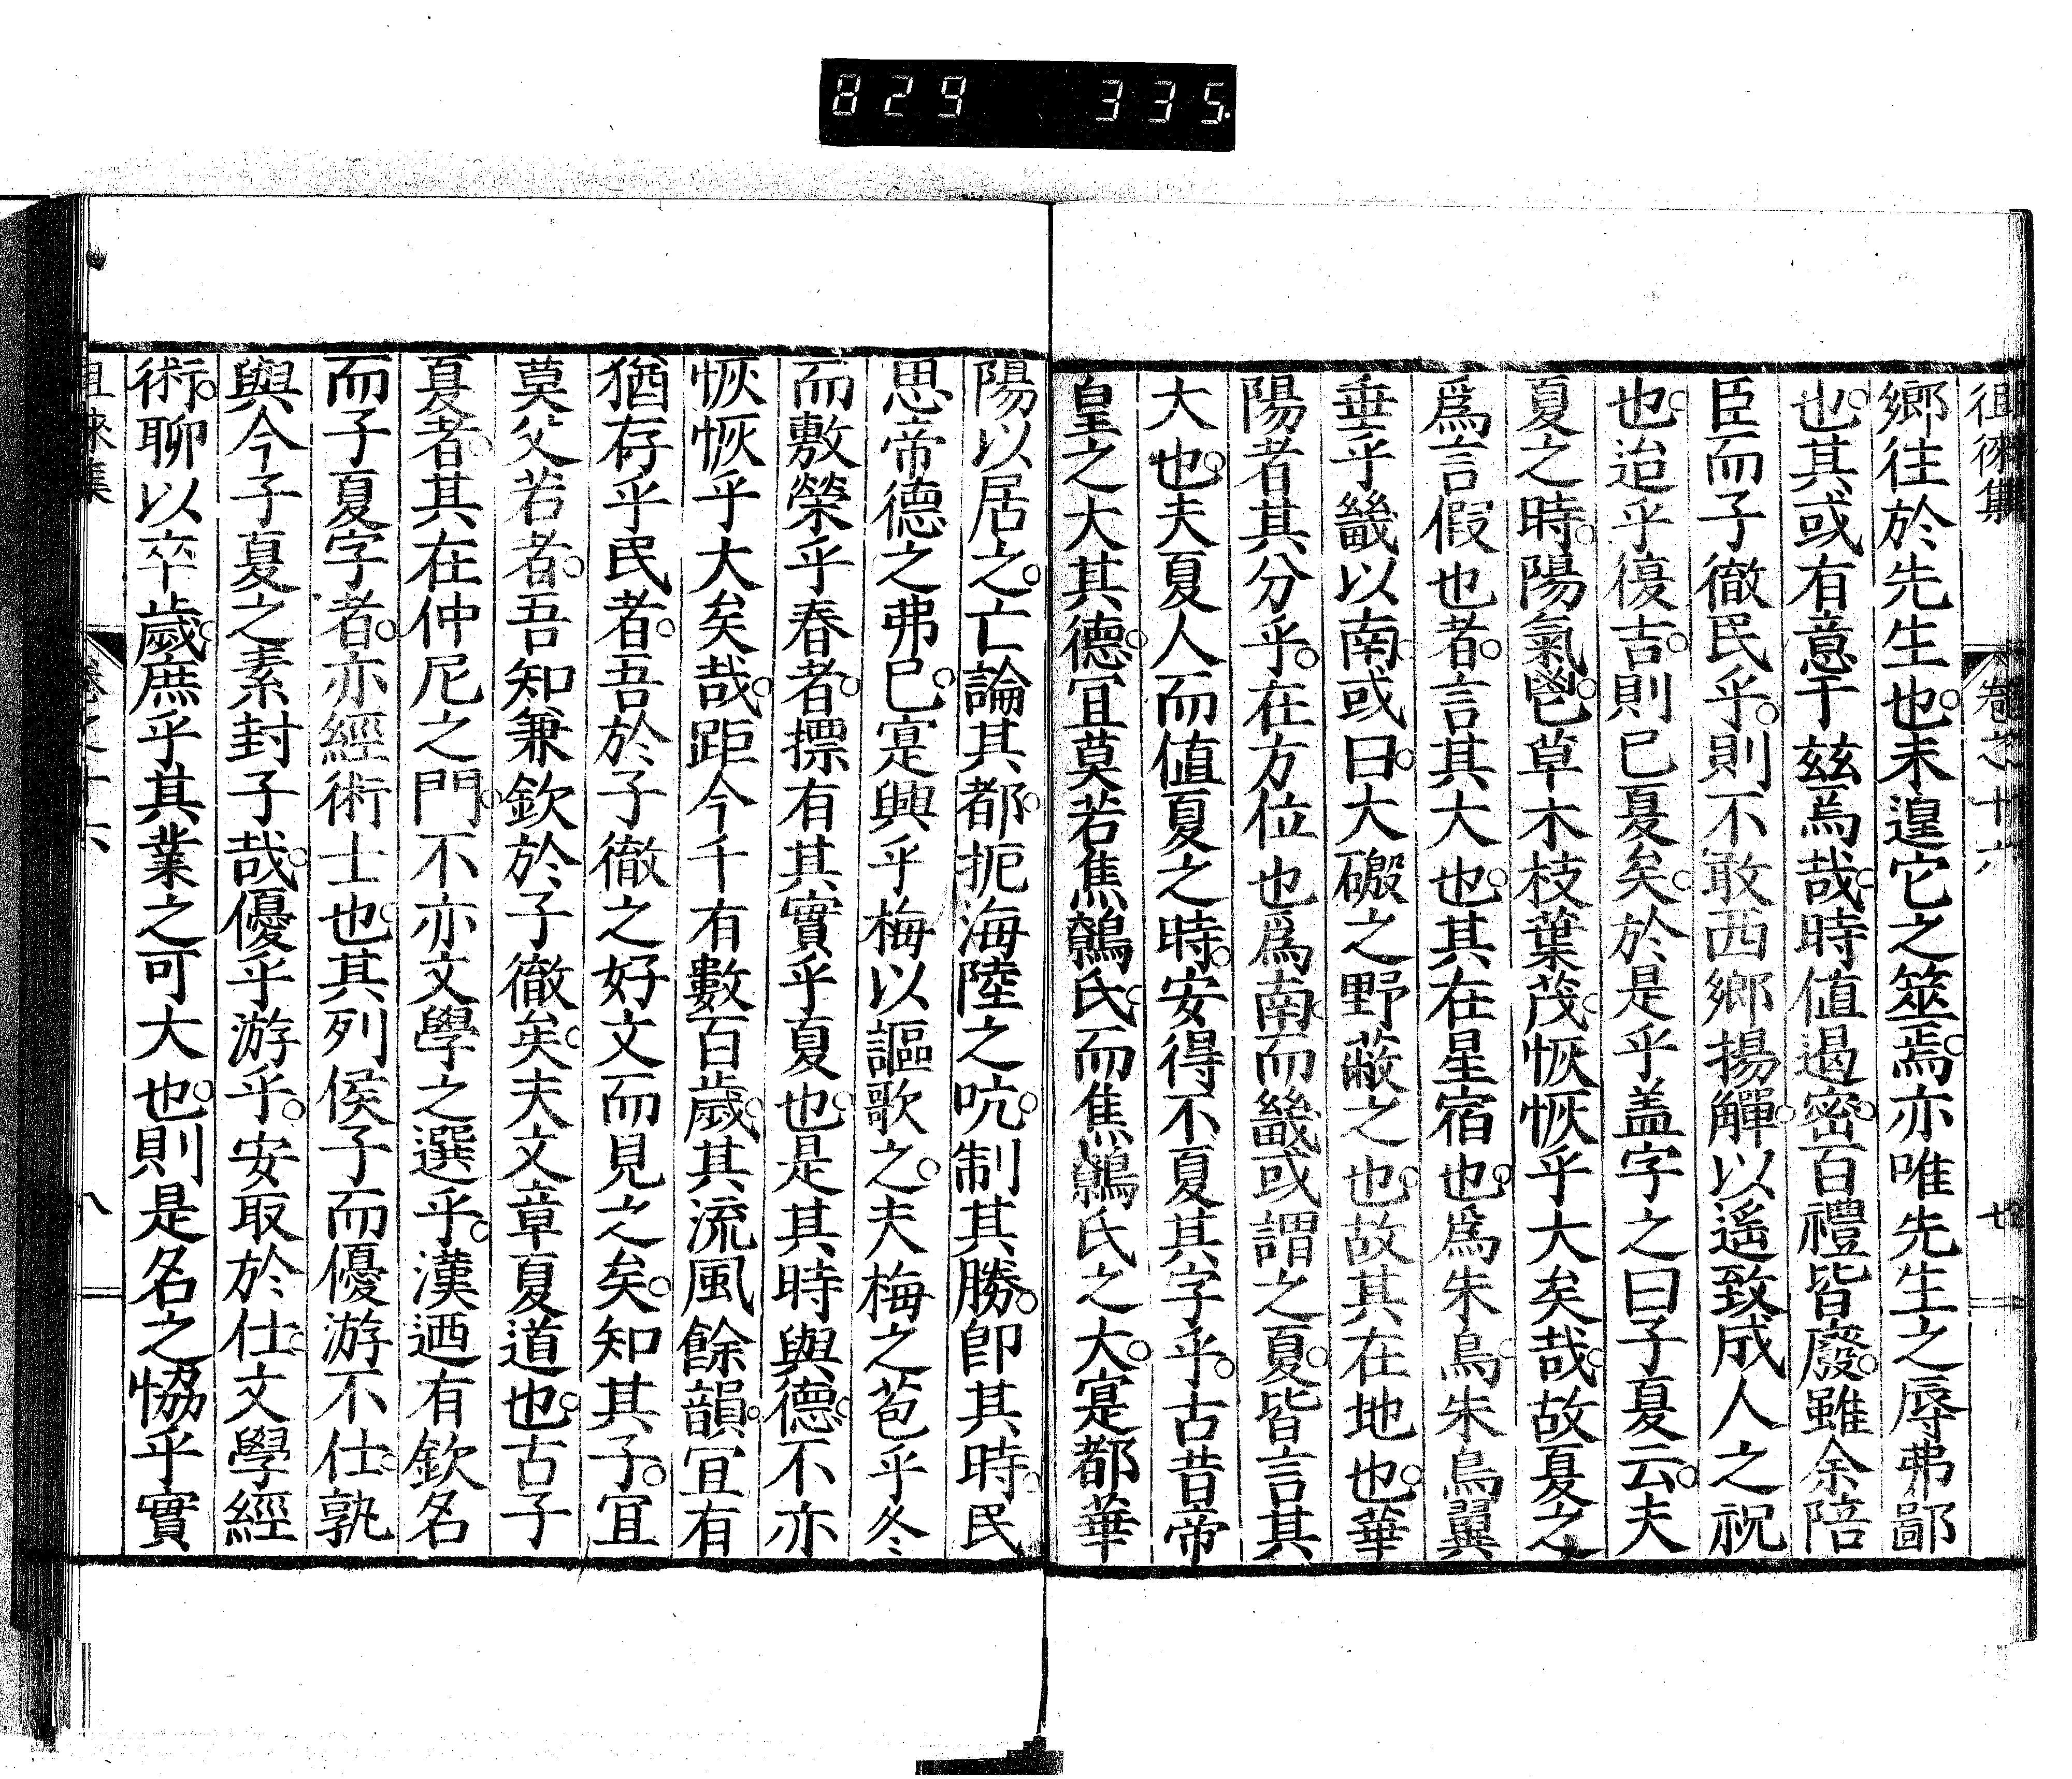 829 335
徂徠集 卷之十六 七
鄉往於先生也。未遑它之筮焉。亦唯先生之辱弗鄙
也。其或有意于茲焉哉。時值遏密。百禮皆廢。雖余陪
臣而子徹民乎。則不敢西鄉揚觶。以遙致成人之祝
也。迨乎復吉。則已夏矣。於是乎盖字之曰子夏云。夫
夏之時。陽氣鬯。草木枝葉茂。恢恢乎大矣哉。故夏之
爲言假也者。言其大也。其在星宿也。爲朱鳥。朱鳥翼
垂乎畿以南。或曰。大磤之野蔽之也。故其在地也。華
陽者其分乎。在方位也爲南。而畿或謂之夏。皆言其
大也。夫夏人而値夏之時。安得不夏其字乎。古昔帝
皇之大其德。宜莫若焦鷯氏。而焦鷯氏之大。寔都華
陽以居之。亡論其都。扼海陸之吭。制其勝。卽其時民
思帝德之弗已。寔興乎梅以謳歌之。夫梅之苞乎冬
而敷榮乎春者。摽有其實乎夏也。是其時與德。不亦
恢恢乎大矣哉。距今千有數百歲。其流風餘韻。宜有
猶存乎民者。吾於子徹之好文而見之矣。知其子。宜
莫父若者。吾知兼欽於子徹矣。夫文章夏道也。古子
夏者。其在仲尼之門。不亦文學之選乎。漢迺有欽名
而子夏字者。亦經術士也。其列侯子而優游不仕。孰
與今子夏之素封子哉。優乎游乎。安取於仕。文學經
術。聊以卒歲。庶乎其業之可大也。則是名之恊乎實
徂徠集 卷之十六 八